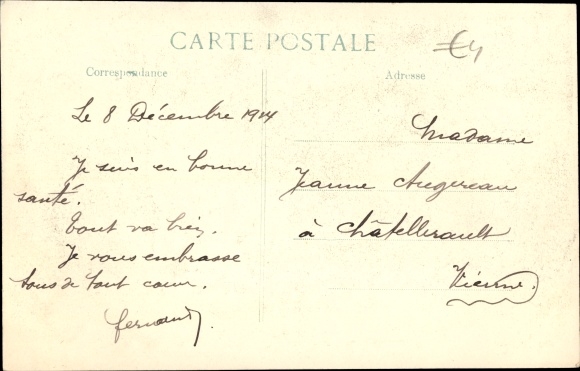 CARTE POSTALE
€4
Correspondance
Adresse
Le 8 Décembre 1914
Je suis en bonne
santé.
Tout va bien.
Je vous embrasse
tous de tout coeur.
fernand
Madame
Jeanne Augereau
à Châtellerault
Vienne.